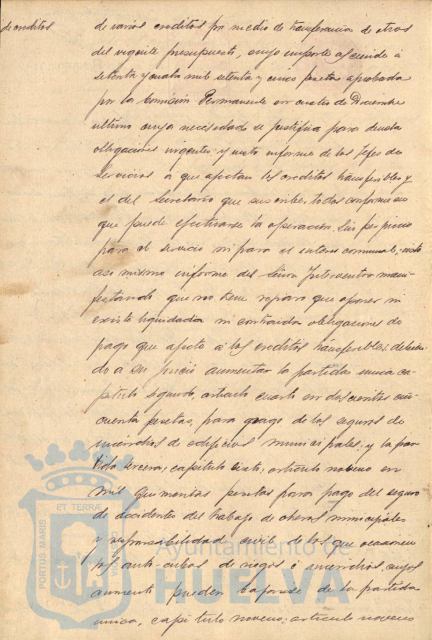 de creditos
de varios creditos por medio de transferencia de otros
del vigente presupuesto, cuyo importe asciende á
setenta y cuatro mil setenta y cinco pesetas aprobada
por la Comisión Permanente en cuatro de Diciembre
ultimo cuya necesidad se justifica para
obligaciones urgentes; y visto informe de los Jefes de
servicios á que afectan los creditos transferibles y
el del Secretario que suscribe, todos conformes en
que puede efectuarse la operación, sin perjuicio
para el servicio ni para el interes comunal; visto
asi mismo informe del Señor Interventor mani-
festando que no tiene reparo que oponer ni
existe liquidada ni contraidas obligaciones de
pago que afecte á los creditos transferibles; debien-
do á su juicio aumentar la partida unica ca-
pitulo segundo, articulo cuarto en doscientas cin-
cuenta pesetas, para pago de los seguros de
incendios de edificios municipales; y la par-
tida tercera, capitulo sexto, articulo noveno en
mil quinientas pesetas para pago del seguro
de accidentes del trabajo de obreros municipales
y responsabilidad civil de los que ocasionen
los auto-cubas de riegos é incendios, cuyos
aumentos pueden bajarse de la partida
unica, capitulo noveno; articulo noveno
PORTUS MARIS ET TERRAE
Ayuntamiento de
HUELVA